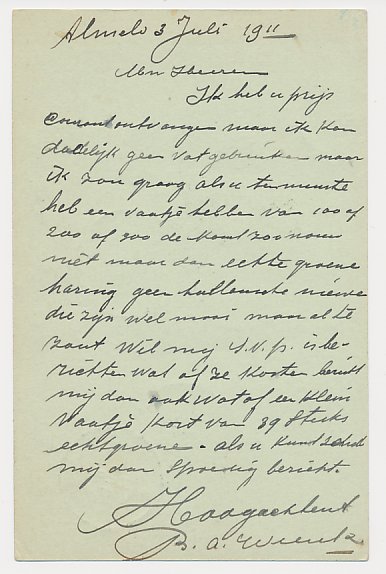 Almelo 3 Juli 1911
Mn Heeren
Ik heb u prijs
courant ontvangen maar ik kan
dadelijk geen vat gebruiken maar
ik zou graag als u tenminste
heb een vaatje hebben van 100 of
200 of 300 de kout zoo nouw
niet maar dan echte groene
haring geen hollansche nieuwe
die zijn wel mooi maar al te
zout Wil mij S.V.p. is be-
richten wat of ze kosten bericht
mij dan ook wat of een klein
vaatje kost van 39 stuks
echt groene - als u kunt
mij dan spoedig bericht.
Hoogachtent
B. A.